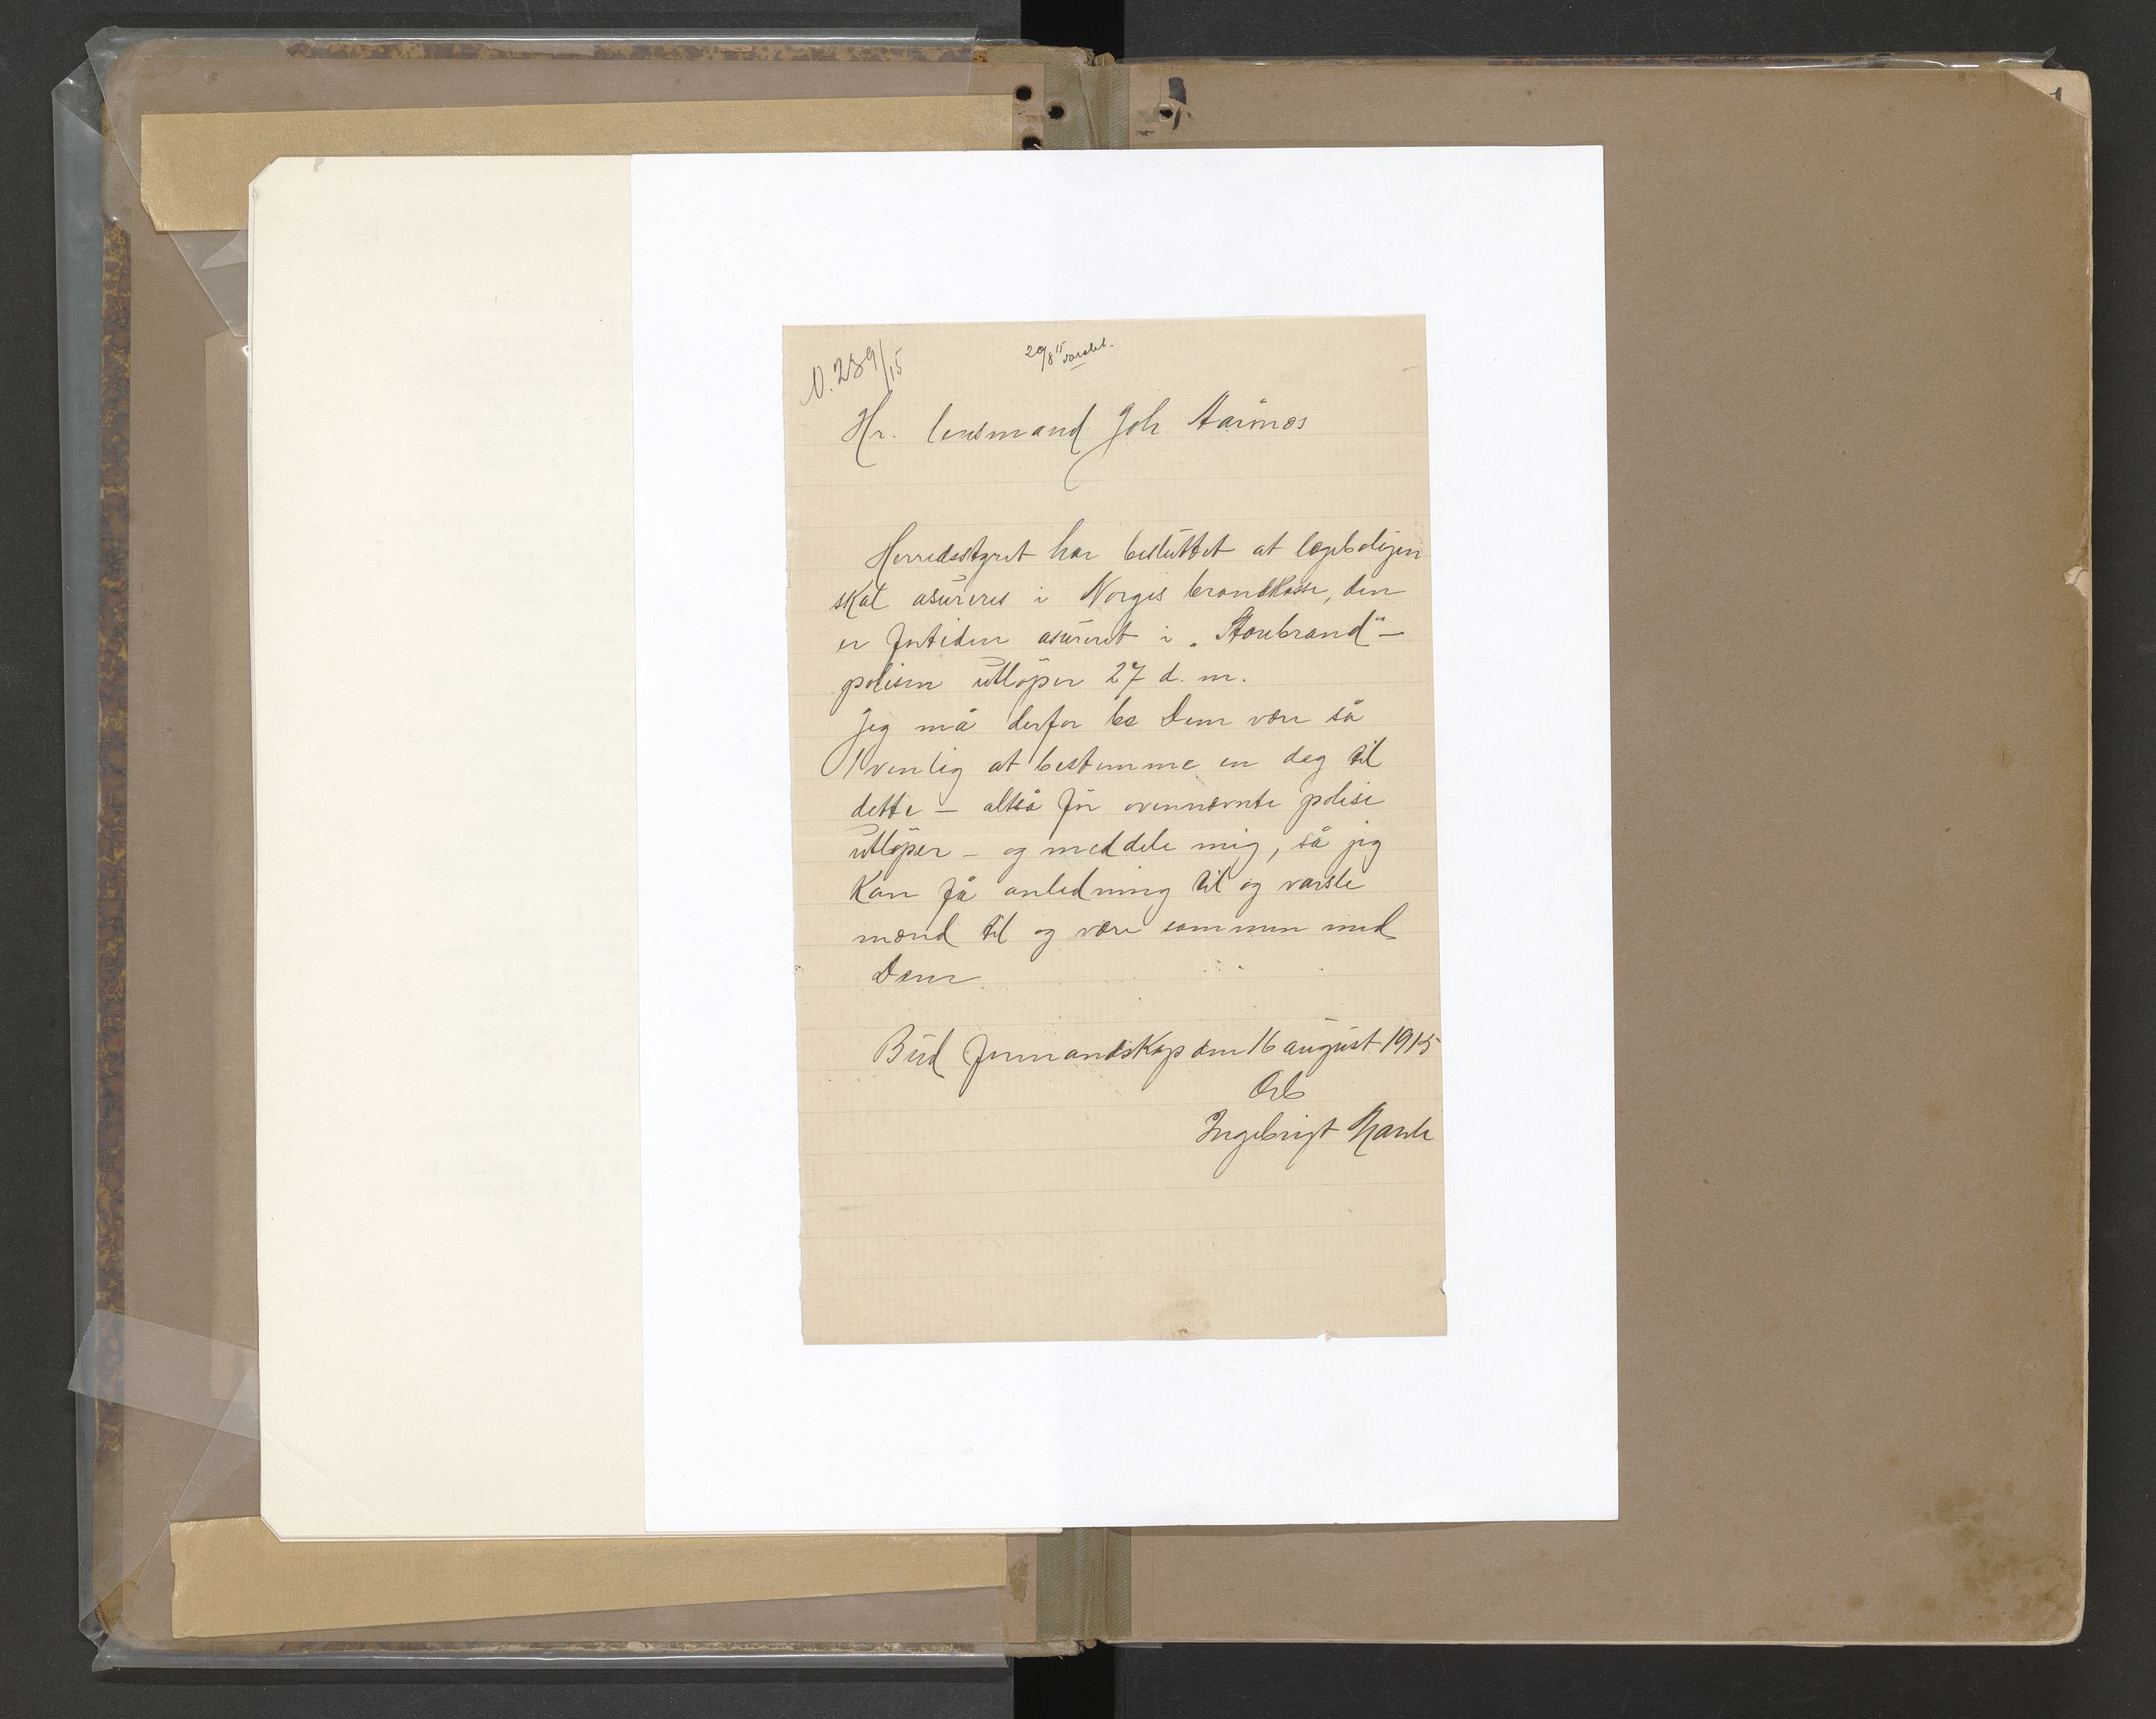 N. 289/15
20/8 15 varslet.
Hr. lensmand Joh Aarønes
Herredsstyret har besluttet at lægeboligen
skal asureres i Norges brandkasse, den
er fortiden asureret i „Storebrand" —
polisen utløper 27 d. m.
Jeg må derfor be Dem være så
venlig at bestemme en dag til
dette — altså før ovennævnte polise
utløper — og meddele mig, så jeg
kan få anledning til og varsle
mænd til og være sammen med
Dem
Bud formandskap den 16 august 1915
Ingebrigt
1